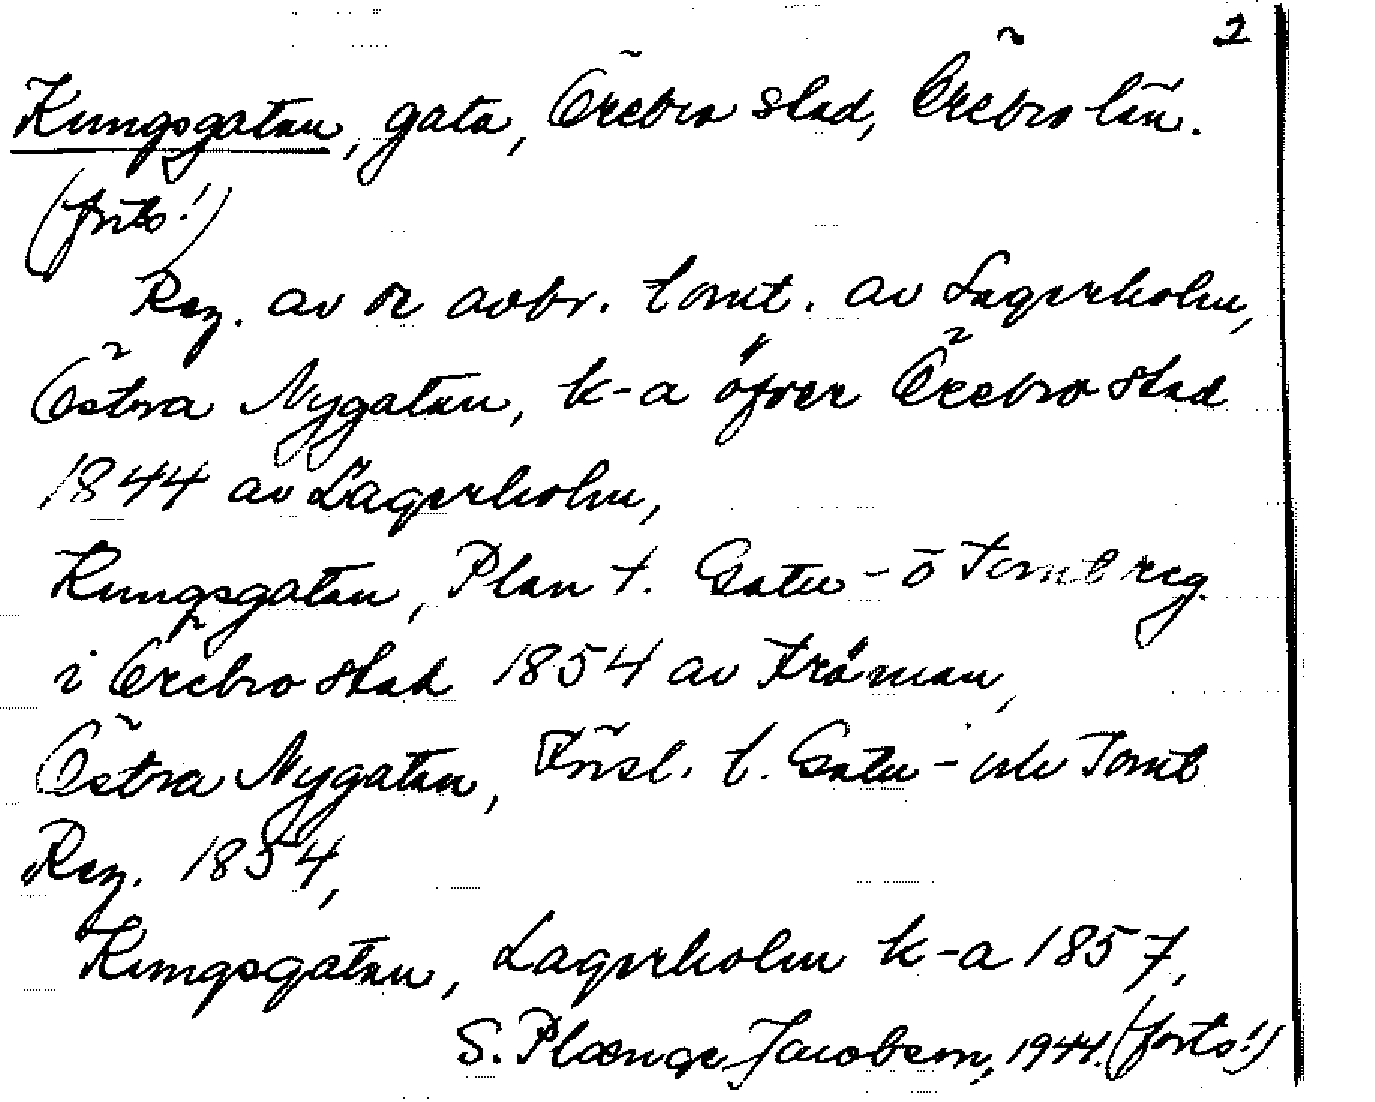 2
Kungsgatan, gata, Örebro stad, Örebro län.
(forts!)
Reg. av ar avbr. tomt. av Lagerholm,
Östra Nygatan, k-a öfver Örebro stad
1844 av Lagerholm,
Kungsgatan, Plan t. Gatu- o Tomtreg.
i Örebro stad 1854 av Fröman,
Östra Nygatan, Försl. t. Gatu- och Tomt
Reg. 1854,
Kungsgatan, Lagerholm k-a 1857,
S. Plænge Jacobson, 1944. (forts!)